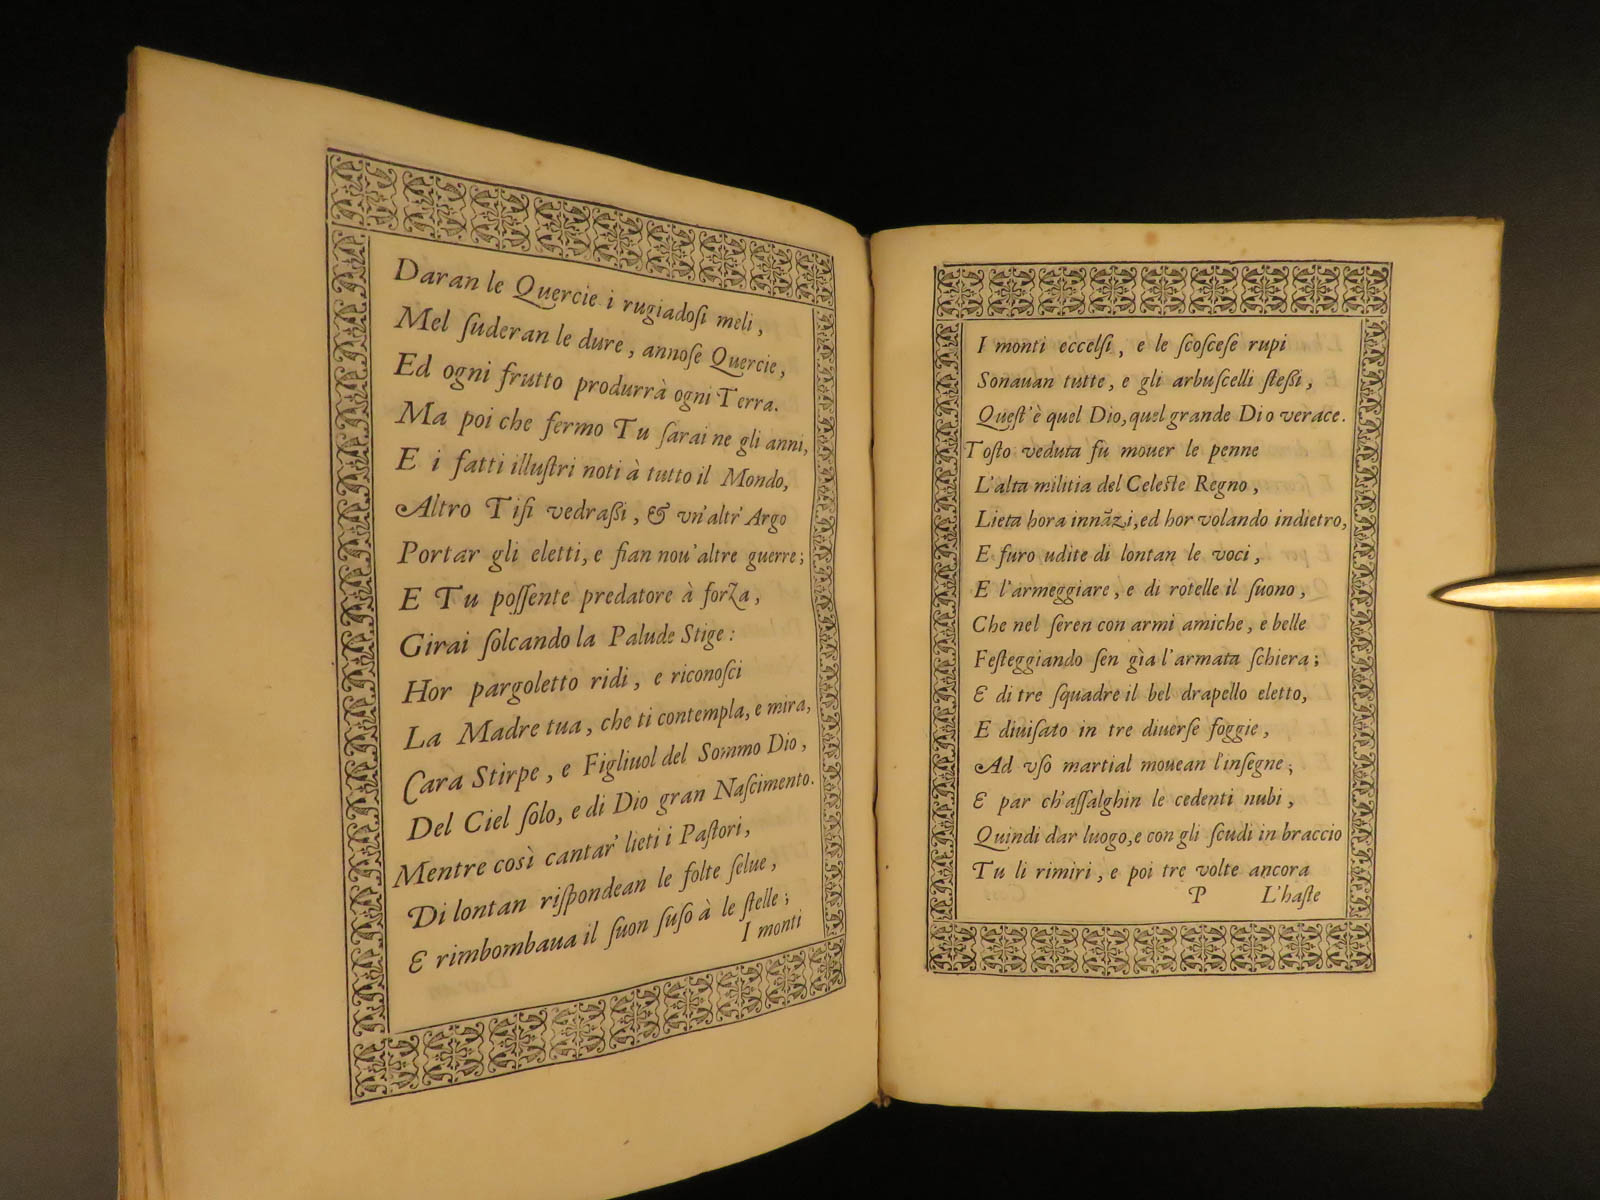 Daran le Quercie i rugiadoſi meli,
Mel ſuderan le dure, annoſe Quercie,
Ed ogni frutto produrrà ogni Terra.
Ma poi che fermo Tu ſarai ne gli anni,
E i fatti illuſtri noti à tutto il Mondo,
Altro Tifi vedraßi, & vn'altr' Argo
Portar gli eletti, e fian nou' altre guerre;
E Tu poſſente predatore à forza,
Girai ſolcando la Palude Stige:
Hor pargoletto ridi, e riconoſci
La Madre tua, che ti contempla, e mira,
Cara Stirpe, e Figliuol del Sommo Dio,
Del Ciel ſolo, e di Dio gran Naſcimento.
Mentre così cantar' lieti i Paſtori,
Di lontan riſpondean le folte ſelue,
E rimbombaua il ſuon ſuſo à le ſtelle;
I monti
I monti eccelſi, e le ſcoſceſe rupi
Sonauan tutte, e gli arbuſcelli ſteßi,
Queſt'è quel Dio, quel grande Dio verace.
Toſto veduta fù mouer le penne
L'alta militia del Celeſte Regno,
Lieta hora innãzi, ed hor volando indietro,
E furo udite di lontan le voci,
E l'armeggiare, e di rotelle il ſuono,
Che nel ſeren con armi amiche, e belle
Feſteggiando ſen gìa l'armata ſchiera;
E di tre ſquadre il bel drapello eletto,
E diuiſato in tre diuerſe foggie,
Ad vſo martial mouean l'inſegne;
E par ch'aſſalghin le cedenti nubi,
Quindi dar luogo, e con gli ſcudi in braccio
Tu li rimiri, e poi tre volte ancora
P L'haſte